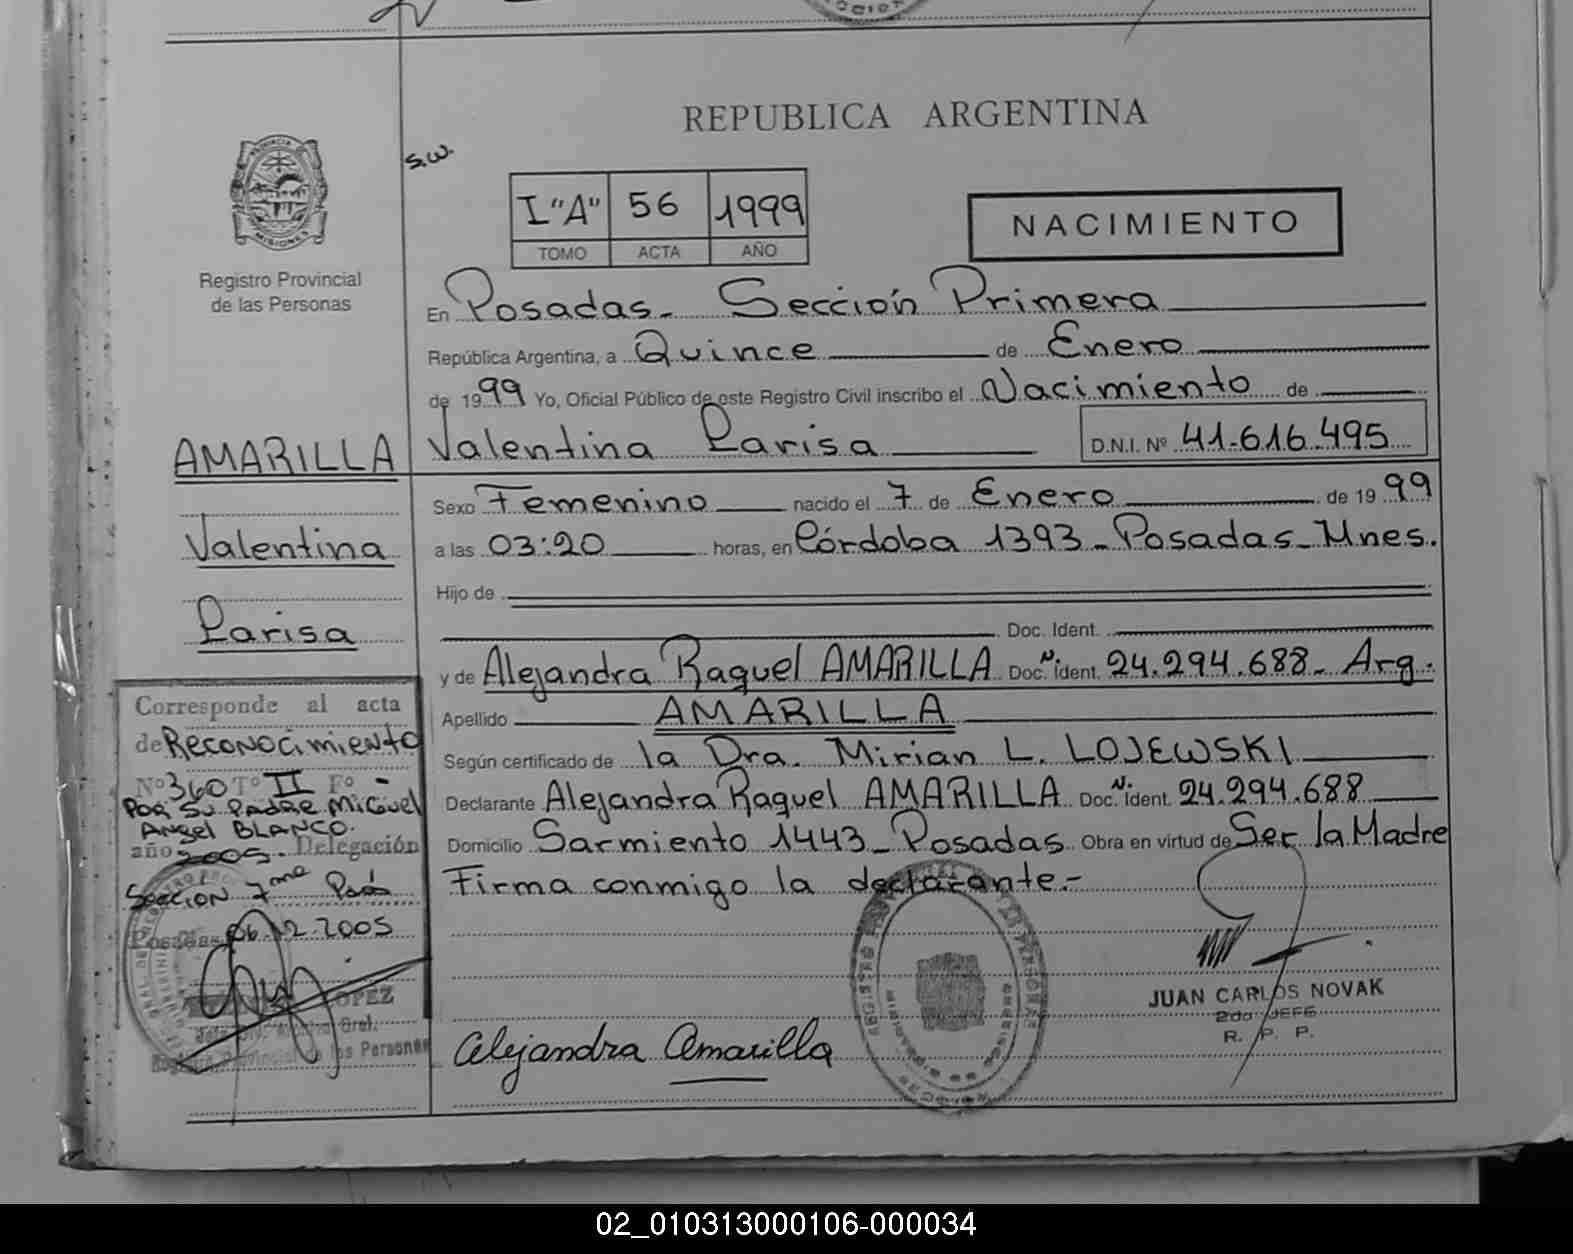 REPUBLICA ARGENTINA
S.W.
PROVINCIA DE
MISIONES
Registro Provincial
de las Personas
I "A" 56 1999
TOMO ACTA AÑO
NACIMIENTO
En Posadas. Sección Primera
República Argentina, a Quince de Enero
de 1999 Yo, Oficial Público de este Registro Civil inscribo el Nacimiento de
Valentina Larisa D.N.I. Nº 41.616.495
Sexo Femenino nacido el 7 de Enero de 1999
a las 03:20 horas, en Córdoba 1393 - Posadas - Mnes.
Hijo de
Doc. Ident.
y de Alejandra Raquel AMARILLA Doc. N. Ident. 24.294.688 - Arg.
Apellido AMARILLA
Según certificado de la Dra. Mirian L. LOJEWSKI
Declarante Alejandra Raquel AMARILLA Doc. N. Ident. 24.294.688
Domicilio Sarmiento 1443 - Posadas Obra en virtud de Ser la Madre
Firma conmigo la declarante.-
Alejandra Amarilla
JUAN CARLOS NOVAK
2do JEFE
R. P. P.
AMARILLA
Valentina
Larisa
Corresponde al acta
de Reconocimiento
Nº 360 Tº II Fº -
Por su Padre Miguel
Angel BLANCO.
año 2005. Delegación
Sección 7ma
Posadas 06.12.2005
LOPEZ
Gral.
Registro Provincial de las Personas
02_010313000106-000034